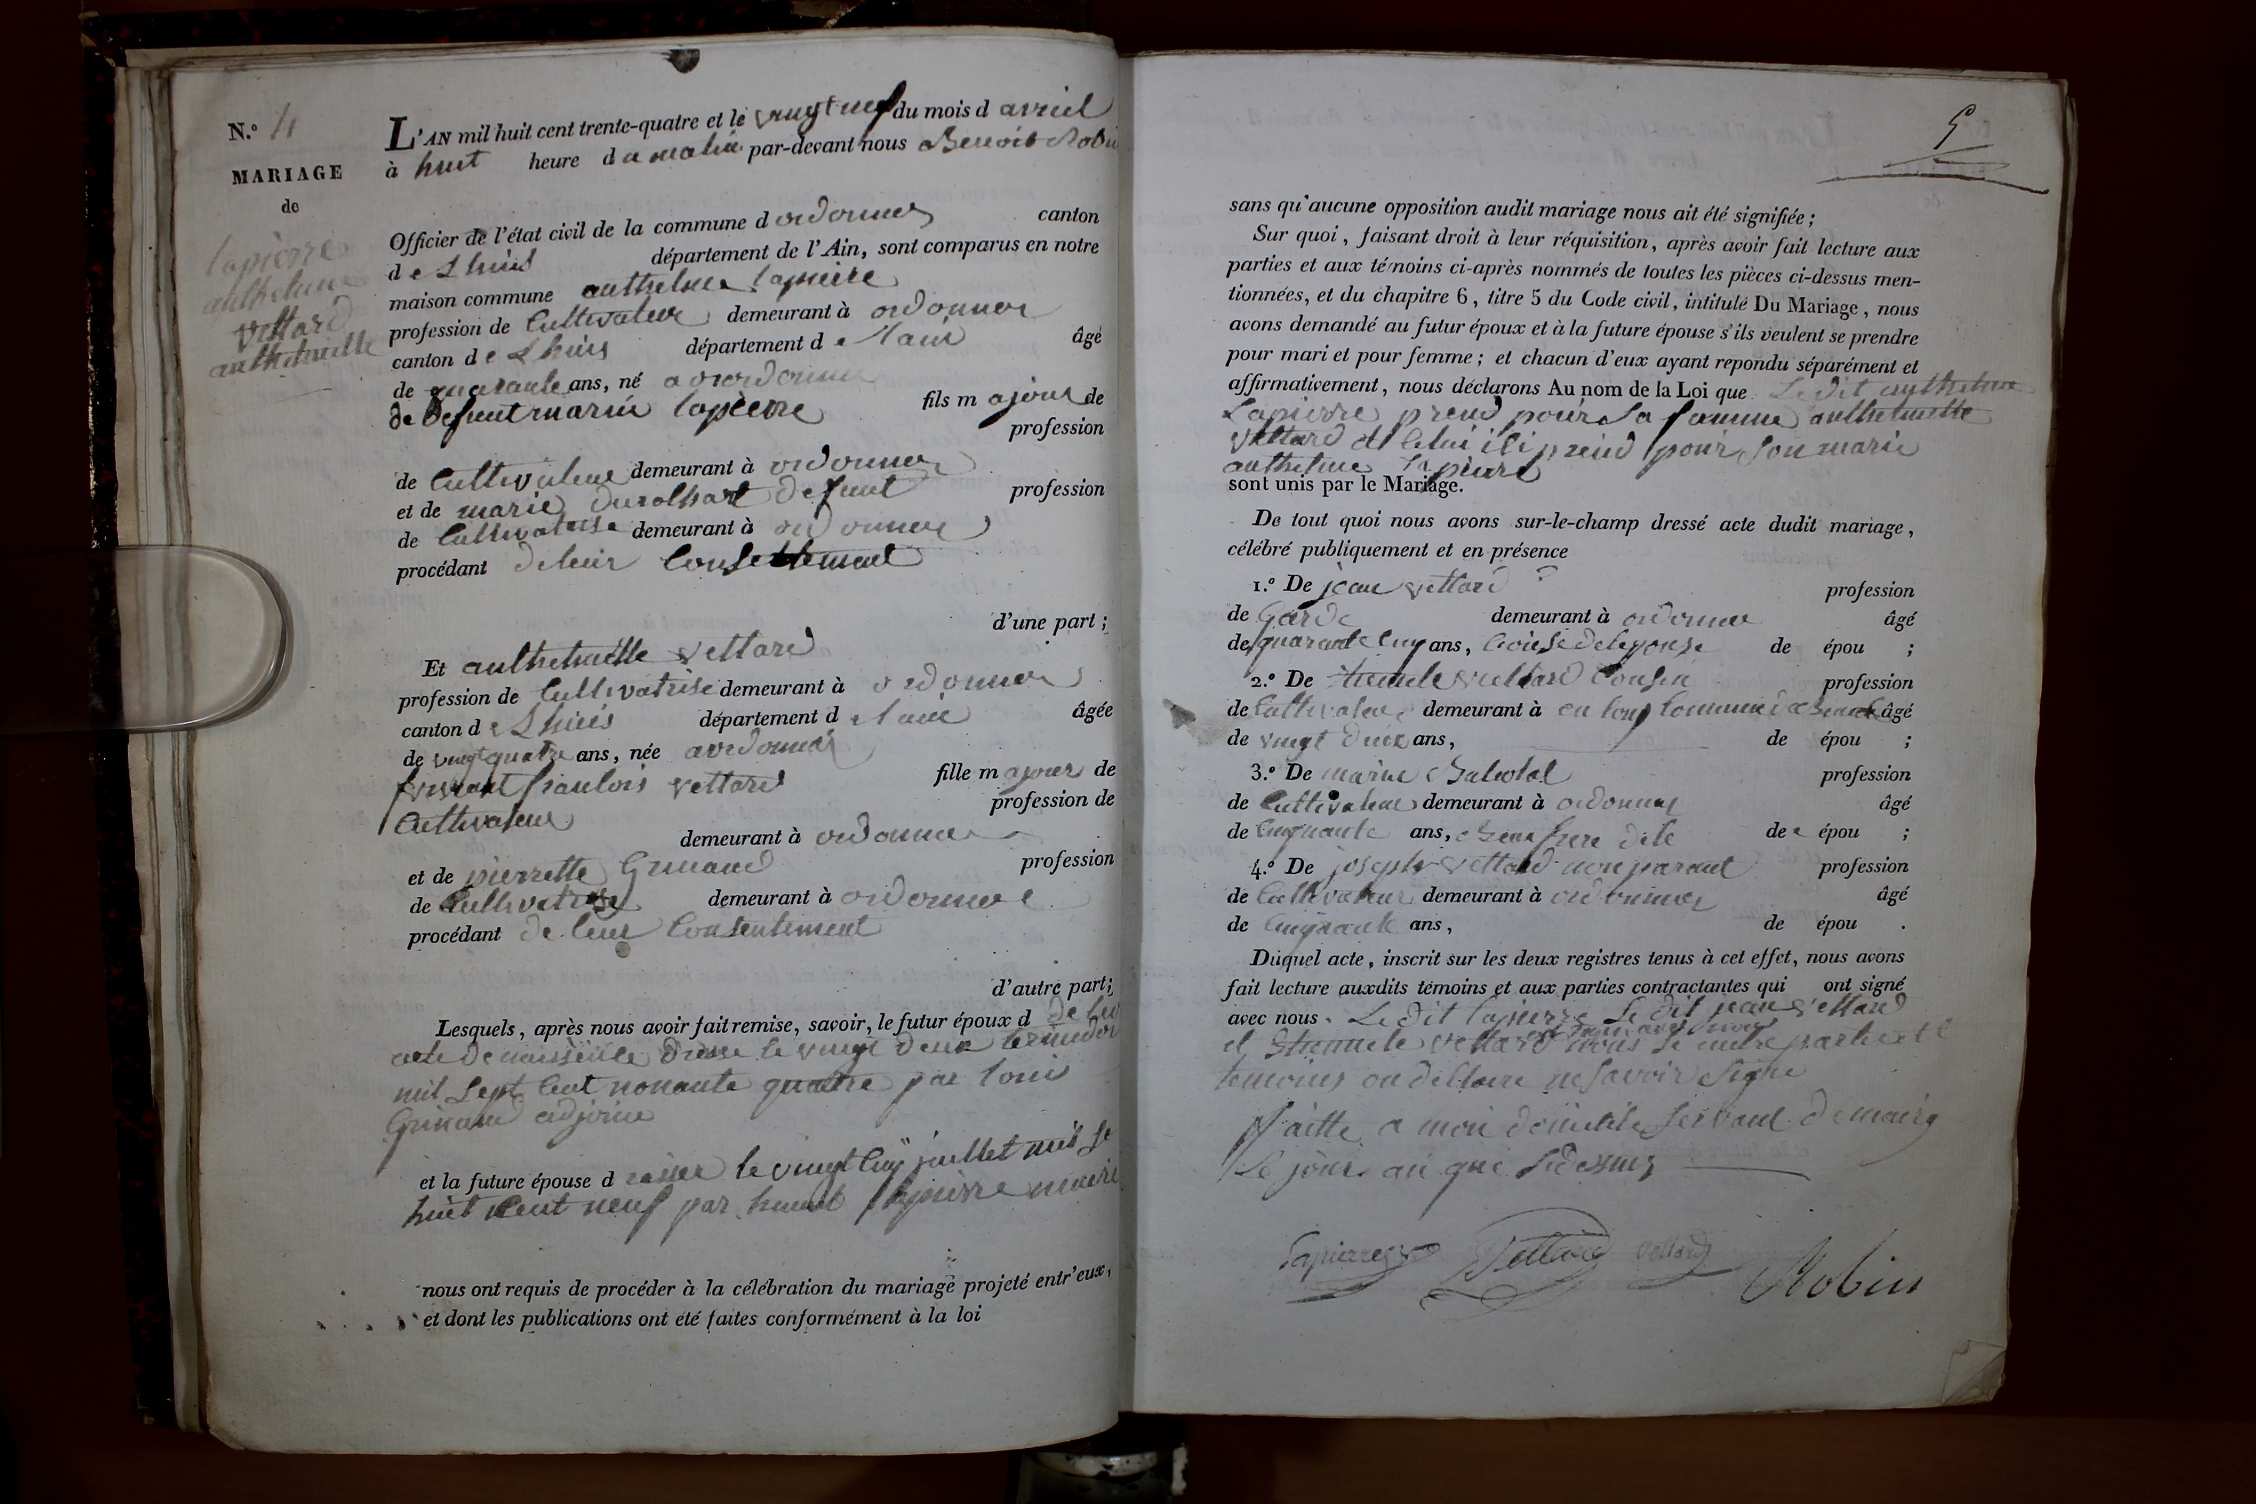 N.o 4
MARIAGE
de
lapierre
anthelme
vettard
anthelmette
L'AN mil huit cent trente-quatre et le vingt neuf du mois d avriel
à huit heure d u matin par-devant nous Benoit Robin
Officier de l'état civil de la commune d ordonnas canton
d e Lhuis département de l'Ain, sont comparus en notre
maison commune anthelme lapierre
profession de Cultivateur demeurant à ordonnas
canton d e Lhuis département d e l'ain âgé
de quarante ans, né a ordonnas
de defeunt marin lapierre fils m ajour de
profession
de Cultivateur demeurant à ordonnas
et de marie defunt profession
de Cultivatrise demeurant à ordonnas
procédant de leur Consettement
d'une part ;
Et anthelmette vettard
profession de Cultivatrise demeurant à ordonnas
canton d e Lhuis département d e l'ain âgée
de vingt quatre ans, née a ordonnas
vivant franlois vettard fille m ajour de
Cultivateur profession de
demeurant à ordonnas
et de pierrette Grinand profession
de Cultivatrise demeurant à ordonnas
procédant de leur Consentement
d'autre part ;
Lesquels, après nous avoir fait remise, savoir, le futur époux d de leu
acte de naissence le vingt deux
mil sept Cent nonante quatre par louis
Grinand adjoint
et la future épouse d le vingt Cinq juillet mil
huit Cent neuf par lapierre maire
nous ont requis de procéder à la célébration du mariage projeté entr'eux,
et dont les publications ont été faites conformément à la loi
5
sans qu'aucune opposition audit mariage nous ait été signifiée ;
Sur quoi, faisant droit à leur réquisition, après avoir fait lecture aux
parties et aux témoins ci-après nommés de toutes les pièces ci-dessus men-
tionnées, et du chapitre 6, titre 5 du Code civil, intitulé Du Mariage, nous
avons demandé au futur époux et à la future épouse s'ils veulent se prendre
pour mari et pour femme ; et chacun d'eux ayant repondu séparément et
affirmativement, nous déclarons Au nom de la Loi que Le dit anthelme
Lapierre prend pour sa famme anthelmette
vettard et prend pour son marie
anthelme lapierre
sont unis par le Mariage.
De tout quoi nous avons sur-le-champ dressé acte dudit mariage,
célébré publiquement et en présence
1.o De jean vettard profession
de Garde demeurant à ordonnas âgé
de quarante Cinq ans, de épou ;
2.o De vettard Cousin profession
de Cultivateur demeurant à âgé
de vingt ans, de épou ;
3.o De marin profession
de Cultivateur demeurant à ordonnas âgé
de Cinquante ans, Beau frere de épou ;
4.o De joseph vettard non parant profession
de Cultivateur demeurant à ordonnas âgé
de Cinquante ans, de épou .
Duquel acte, inscrit sur les deux registres tenus à cet effet, nous avons
fait lecture auxdits témoins et aux parties contractantes qui ont signé
avec nous. Le dit lapierre le dit jean vettard
et vettard avec nous partie et l
temoins on declare ne savoir signe
faitte a mon domicile servant de mairy
Le jour an que
Lapierre Vettard vettard Robin